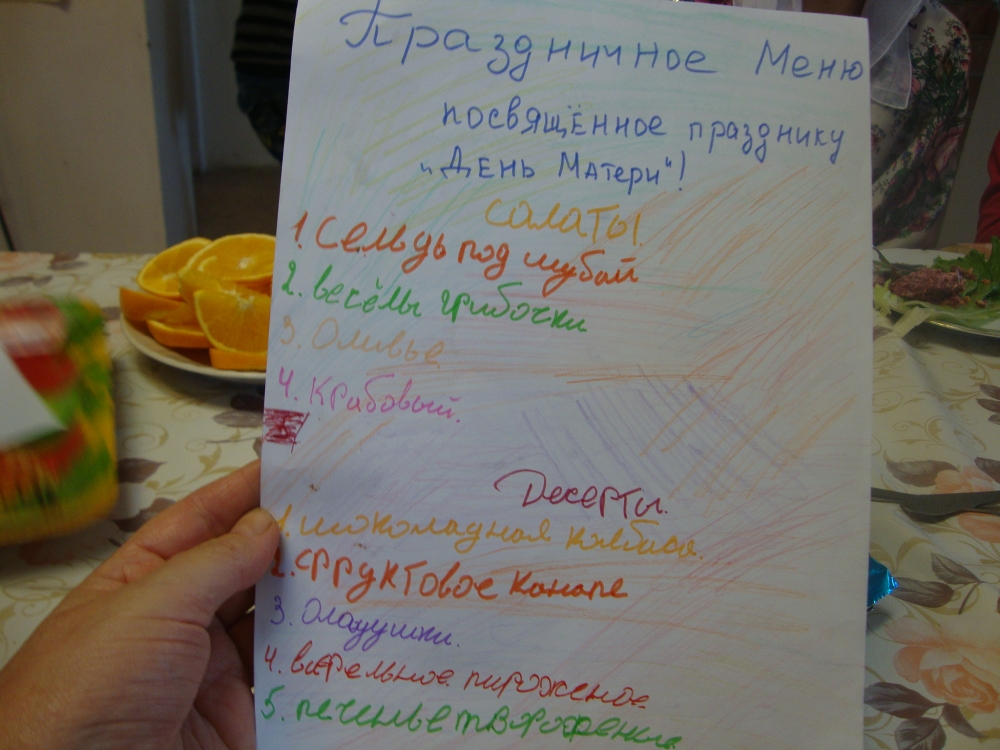 Праздничное Меню
посвящённое празднику
"День Матери"!
Салаты.
1. Сельдь под шубой
2. весёлы грибочки
3. Оливье
4. Крабовый.
Десерты.
1. шоколадная колбаса.
2. Фруктовое канапе
3. Оладушки.
4. вафельное пироженое
5. печенье творо